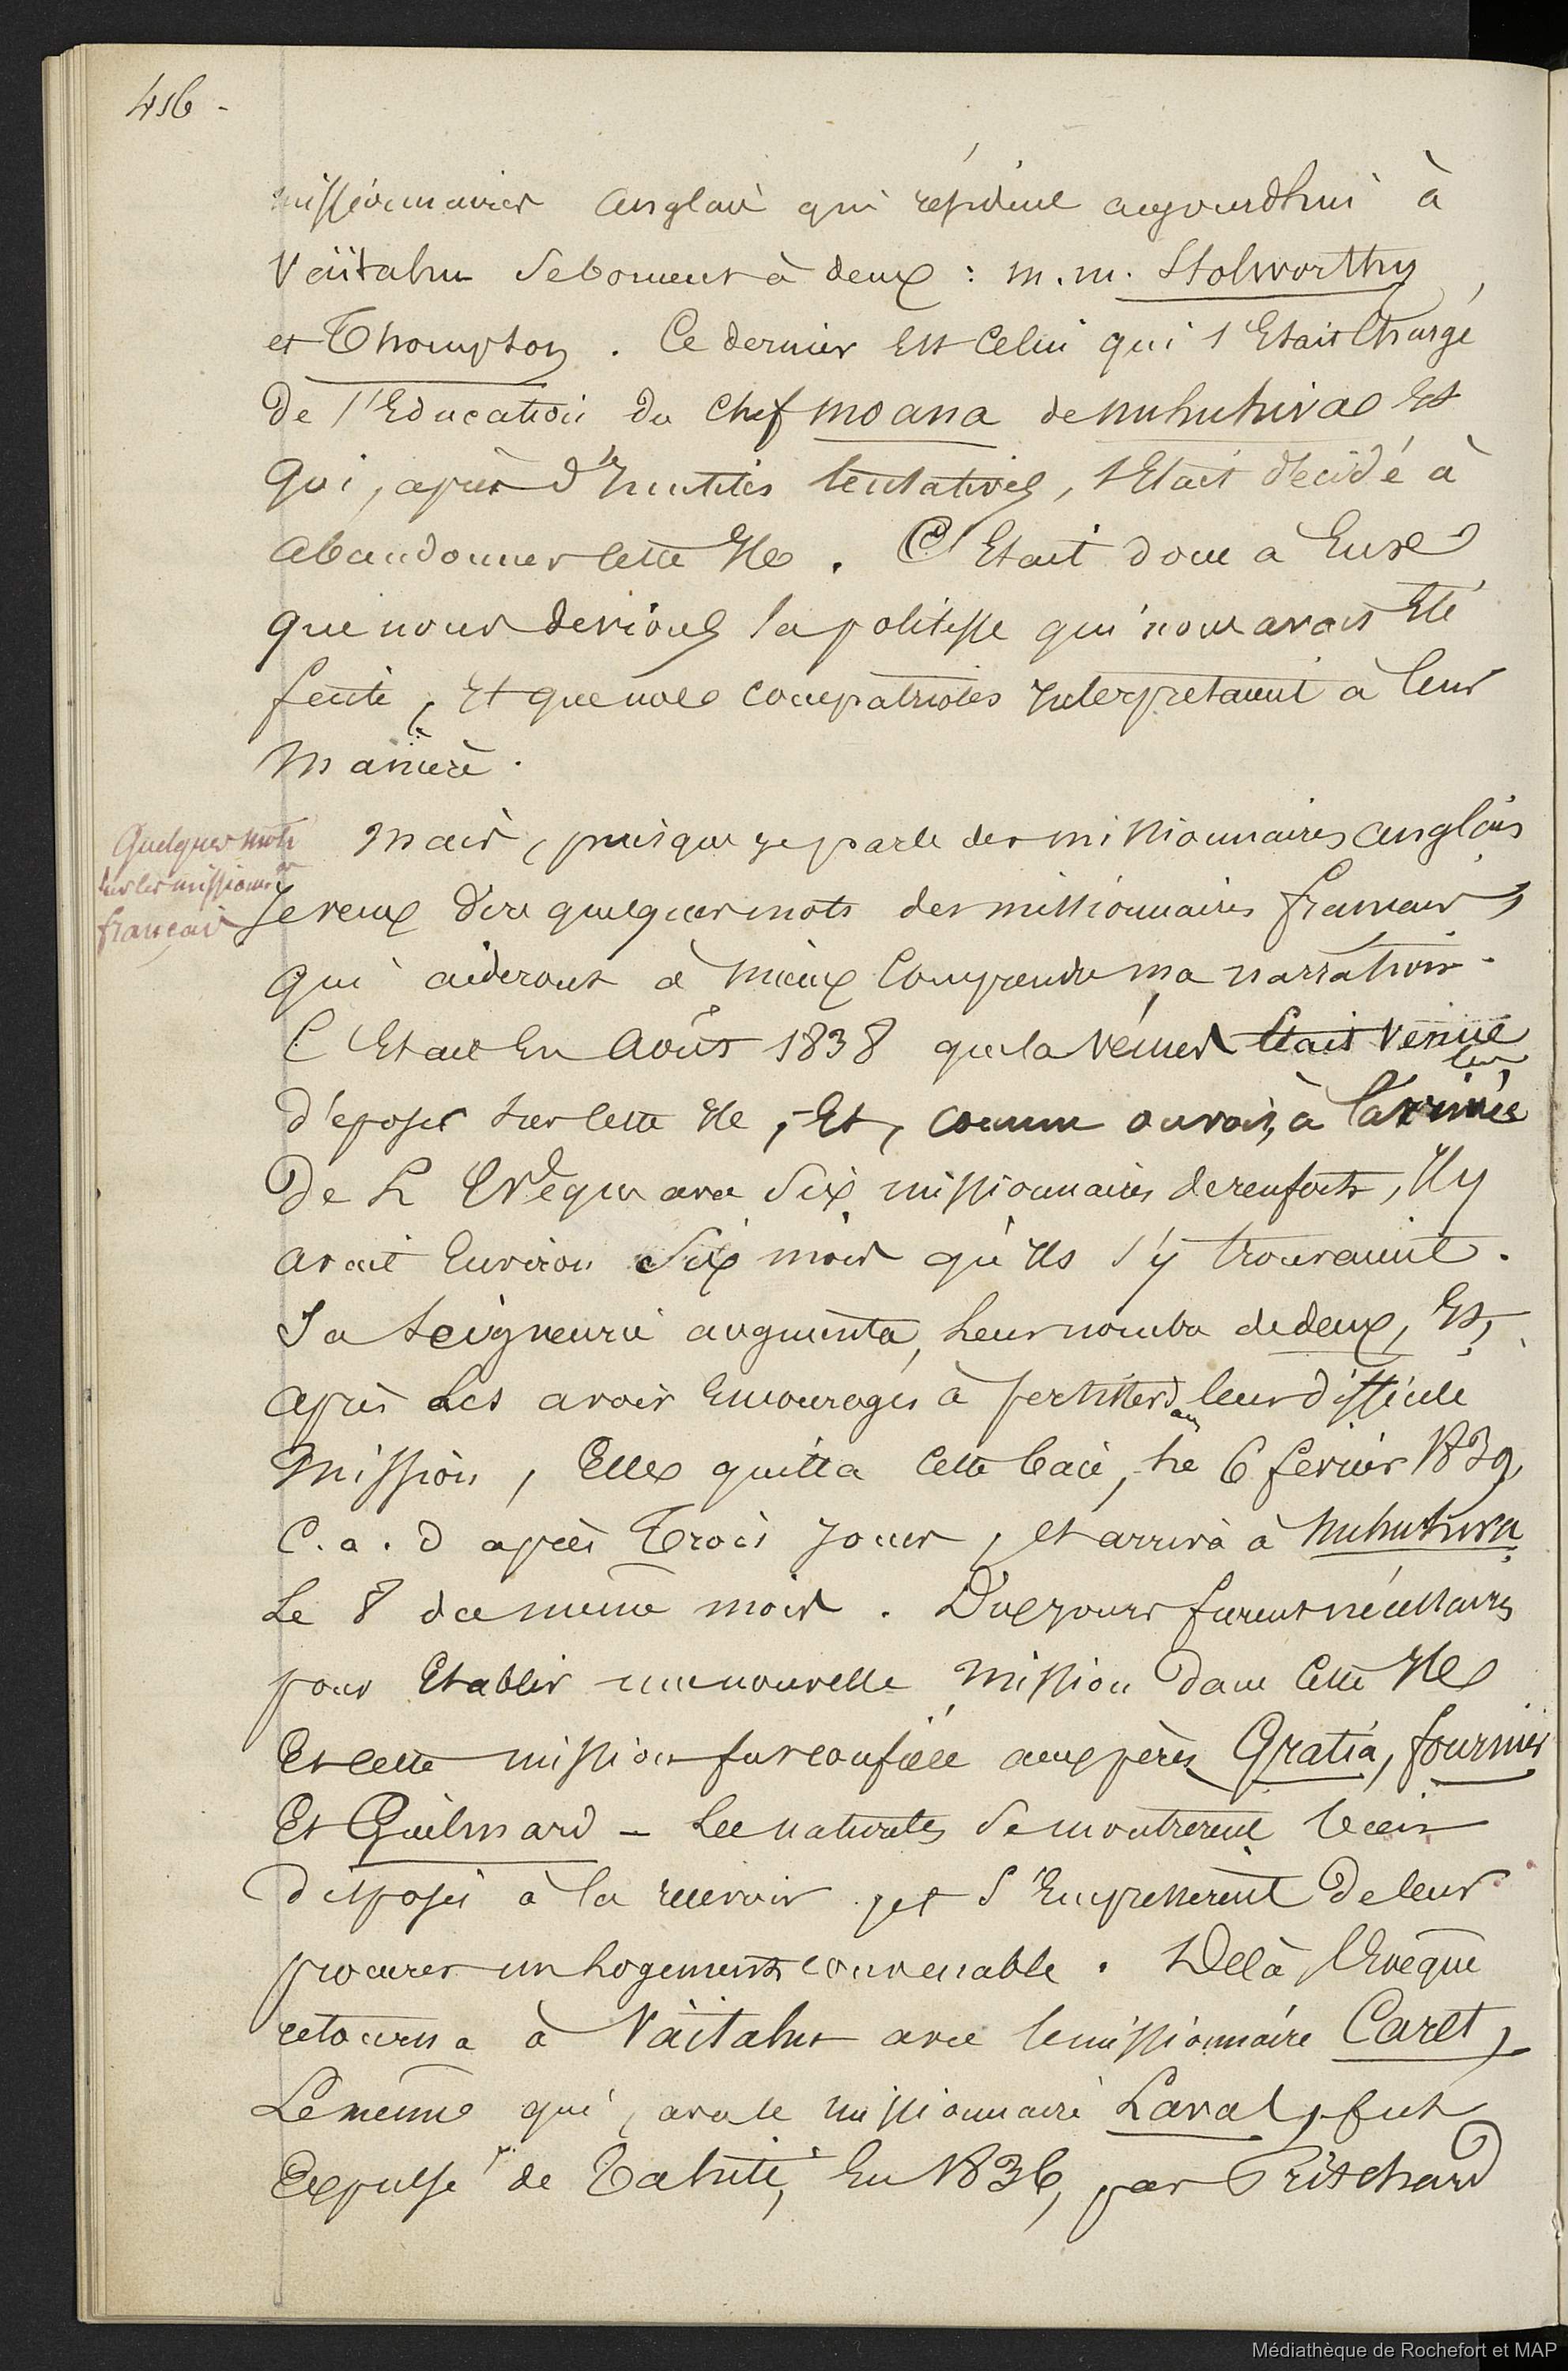 416 -
missionnaires anglais qui résident aujourdhui à
Vaïtahu se bornent à deux : m.m. Stolworthy,
et Thompson . Ce dernier Est Celui qui s'Etait Chargé
De l'Education du Chef moana de nuhuhiva Et
Qui, après d'Inutiles tentatives, s'Etait décidé à
abandonner Cette Ile . C'Etait donc a Eux
que nous devions la politesse qui nous avait Eté
faite, Et que nos compatriotes Interpretaient à leur
manière .
Quelques mots
sur les missionres
français
Mais, puisque je parle des missionnaires anglais
Je veux dire quelques mots des missionnaires français,
qui aideront à mieux Comprendre ma narration .
C'Etait En Août 1838 que la Vénus Etait Venue
les
déposer sur Cette Ile , Et, comme on voit, à l'arrivée
De L'Evêque avec Six missionnaires de renforts, Il y
avait Environ Six mois qu'Ils s'y trouvaient .
Sa Seigneurie augmenta, leur nombre de deux, Et,
après Les avoir Encouragés à persister dans leur difficile
Mission, Elle quitta Cette baie, Le 6 fevrier 1839,
C.a.d après Trois jours, Et arriva à Nuhuhiva
Le 8 du même mois . Dix jours furent nécessaires
pour Etablir une nouvelle Mission dans Cette Ile
Et Cette mission fut confiée aux pères Gratia, fournier
Et Guilmard - Les naturels se montrèrent bien
disposés à la recevoir et s'Empressèrent De leur
procurer un logement convenable . De là, l'Evêque
retourna à Vaïtahu avec le missionnaire Caret,
Le même qui, avec le missionnaire Laval, fut
Expulsé de Tahiti, En 1836, par Pritchard
Médiathèque de Rochefort et MAP